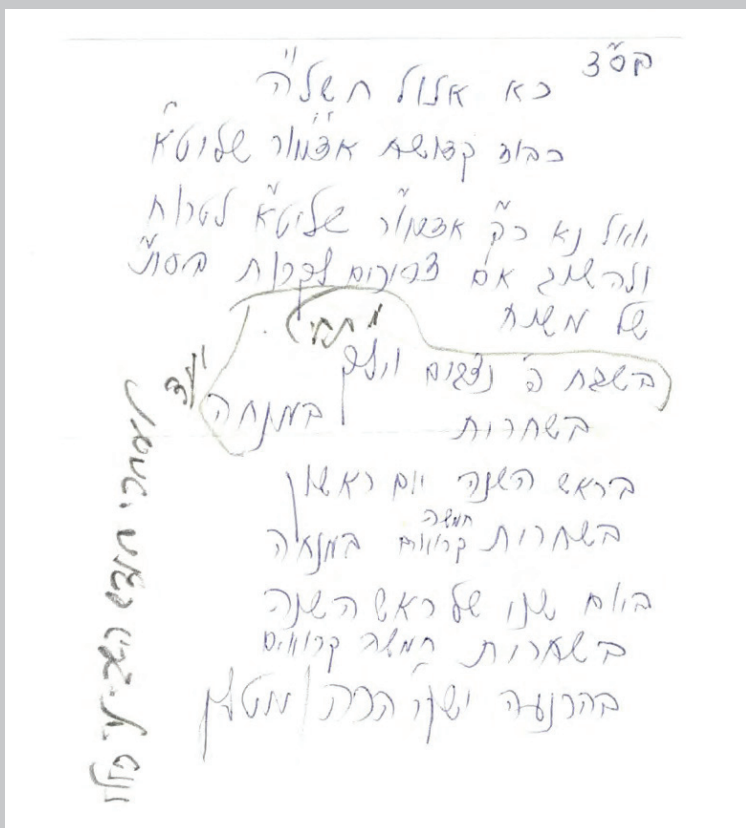 בס"ד
כא אלול תשל"ה
כבוד קדושת אדמו"ר שליט"א
יואיל נא כ"ק אדמו"ר שליט"א לטרוח
ולהשיב אם צריכים לקרות בסת"
של משיח
בשבת פ' נצבים וילך
בשחרות במנחה
בראש השנה יום ראשון
בשחרית חמשה קרואים במנחה
ביום שני של ראש השנה
בשחרית חמשה קרואים
בהרנעה
החדש השביעי כולו